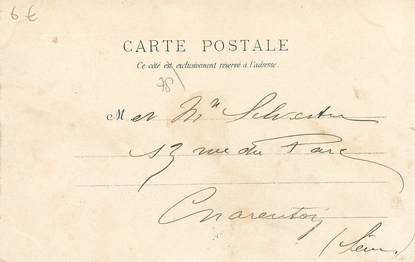 6 €
CARTE POSTALE
Ce côté est exclusivement réservé à l'adresse.
78
M et Mme Silvestre
13 rue du Parc
Charenton
(Seine)